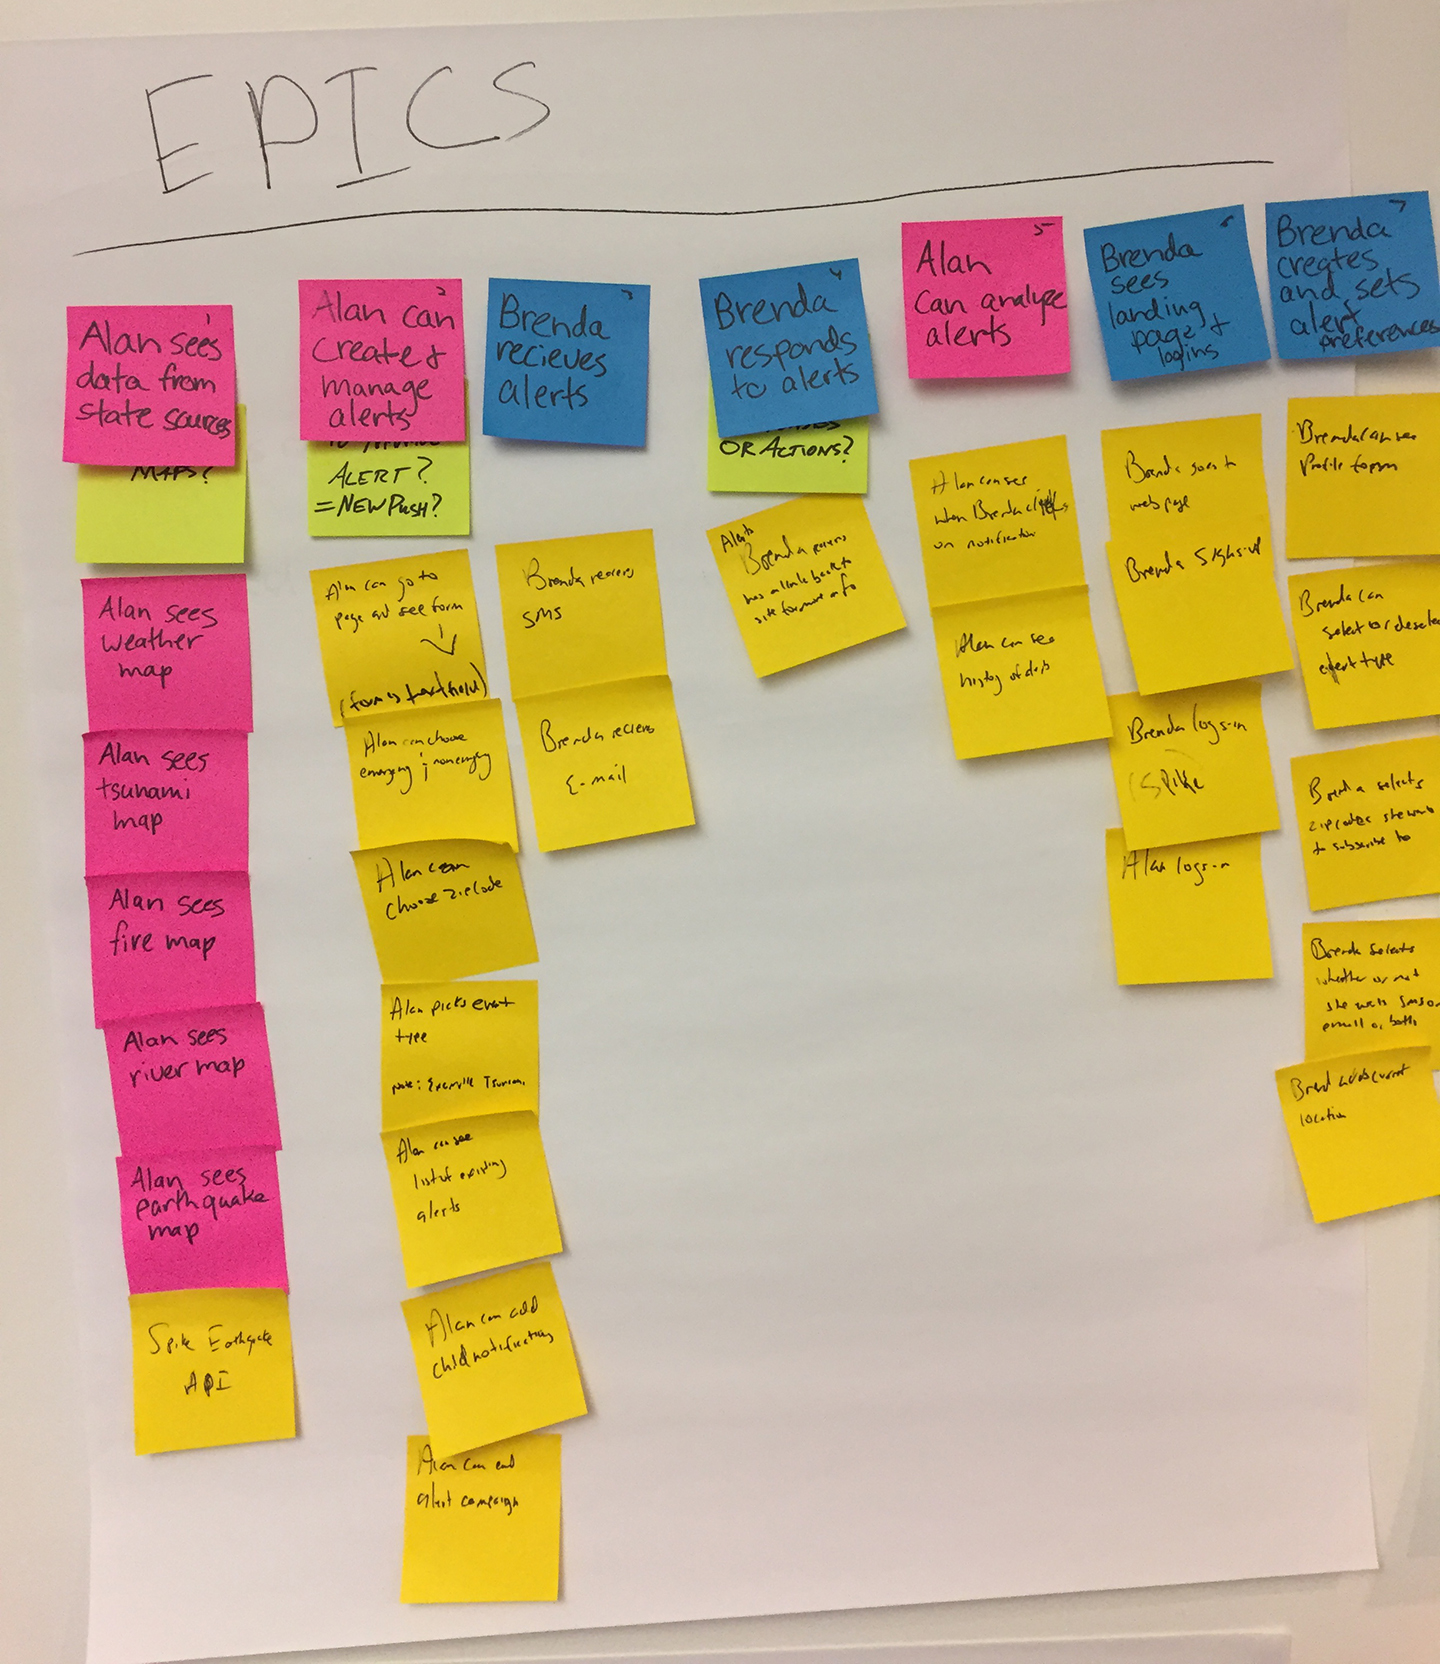 EPICS
1
Alan sees
data from
state sources
MAPS?
Alan sees
weather
map
Alan sees
tsunami
map
Alan sees
fire map
Alan sees
river map
Alan sees
earthquake
map
Spike Earthquake
API
2
Alan can
create &
manage
alerts
ALERT?
= NEW PUSH?
Alan can go to
page and see form
(form is
Alan can choose
Alan can
choose zipcode
Alan picks event
type
note:
Alan can see
list of existing
alerts
Alan can add
child notification
Alan can end
alert campaign
3
Brenda
recieves
alerts
Brenda recieves
SMS
Brenda recieves
E-mail
4
Brenda
responds
to alerts
OR ACTIONS?
Alerts
Brenda
has a link back to
site for more info
5
Alan
can analyze
alerts
Alan can see
when Brenda
on notification
Alan can see
history of
6
Brenda
sees
landing
page &
logins
Brenda goes to
web page
Brenda Signs-up
Brenda logs-in
(Spike
Alan logs-in
7
Brenda
creates
and sets
alert
preferences
Brenda can see
Profile form
Brenda can
select or deselec
type
Brenda selects
zipcodes she wants
to subscribe to
Brenda selects
whether or not
she wants SMS or
email or both
Brend adds current
location